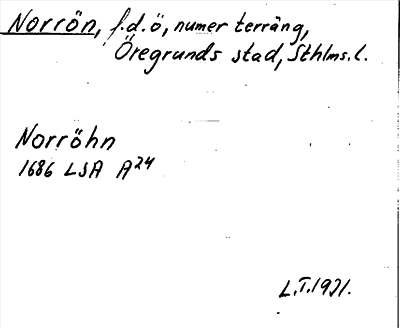 Norrön, f.d. ö, numer terräng,
Öregrunds stad, Sthlms. l.
Norröhn
1686 LSA A24
L.I.1971.